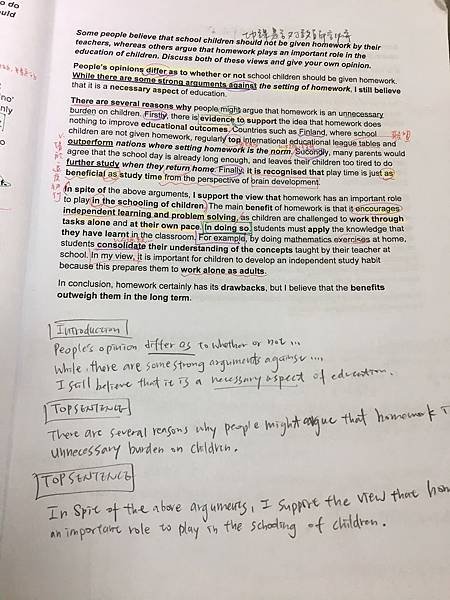 o do
ould
Some people believe that school children should not be given homework by their
teachers, whereas others argue that homework plays an important role in the
education of children. Discuss both of these views and give your own opinion.
People's opinions differ as to whether or not school children should be given homework.
While there are some strong arguments against the setting of homework, I still believe
that it is a necessary aspect of education.
There are several reasons why people might argue that homework is an unnecessary
burden on children. Firstly, there is evidence to support the idea that homework does
nothing to improve educational outcomes. Countries such as Finland, where school
children are not given homework, regularly top international educational league tables and
outperform nations where setting homework is the norm. Secondly, many parents would
agree that the school day is already long enough, and leaves their children too tired to do
further study when they return home. Finally, it is recognised that play time is just as
beneficial as study time from the perspective of brain development.
In spite of the above arguments, I support the view that homework has an important role
to play in the schooling of children. The main benefit of homework is that it encourages
independent learning and problem solving, as children are challenged to work through
tasks alone and at their own pace. In doing so, students must apply the knowledge that
they have learnt in the classroom. For example, by doing mathematics exercises at home,
students consolidate their understanding of the concepts taught by their teacher at
school. In my view, it is important for children to develop an independent study habit
because this prepares them to work alone as adults.
In conclusion, homework certainly has its drawbacks, but I believe that the benefits
outweigh them in the long term.
Introduction
People's opinion differ as to whether or not ...
While there are some strong arguments against ....
I still believe that it is a necessary aspect of education.
TOPSENTENCE
There are several reasons why people might argue that homework
unnecessary burden on children.
TOPSENTENCE
In spit of the above arguments, I support the view that hom
an important role to play in the schooling of children.